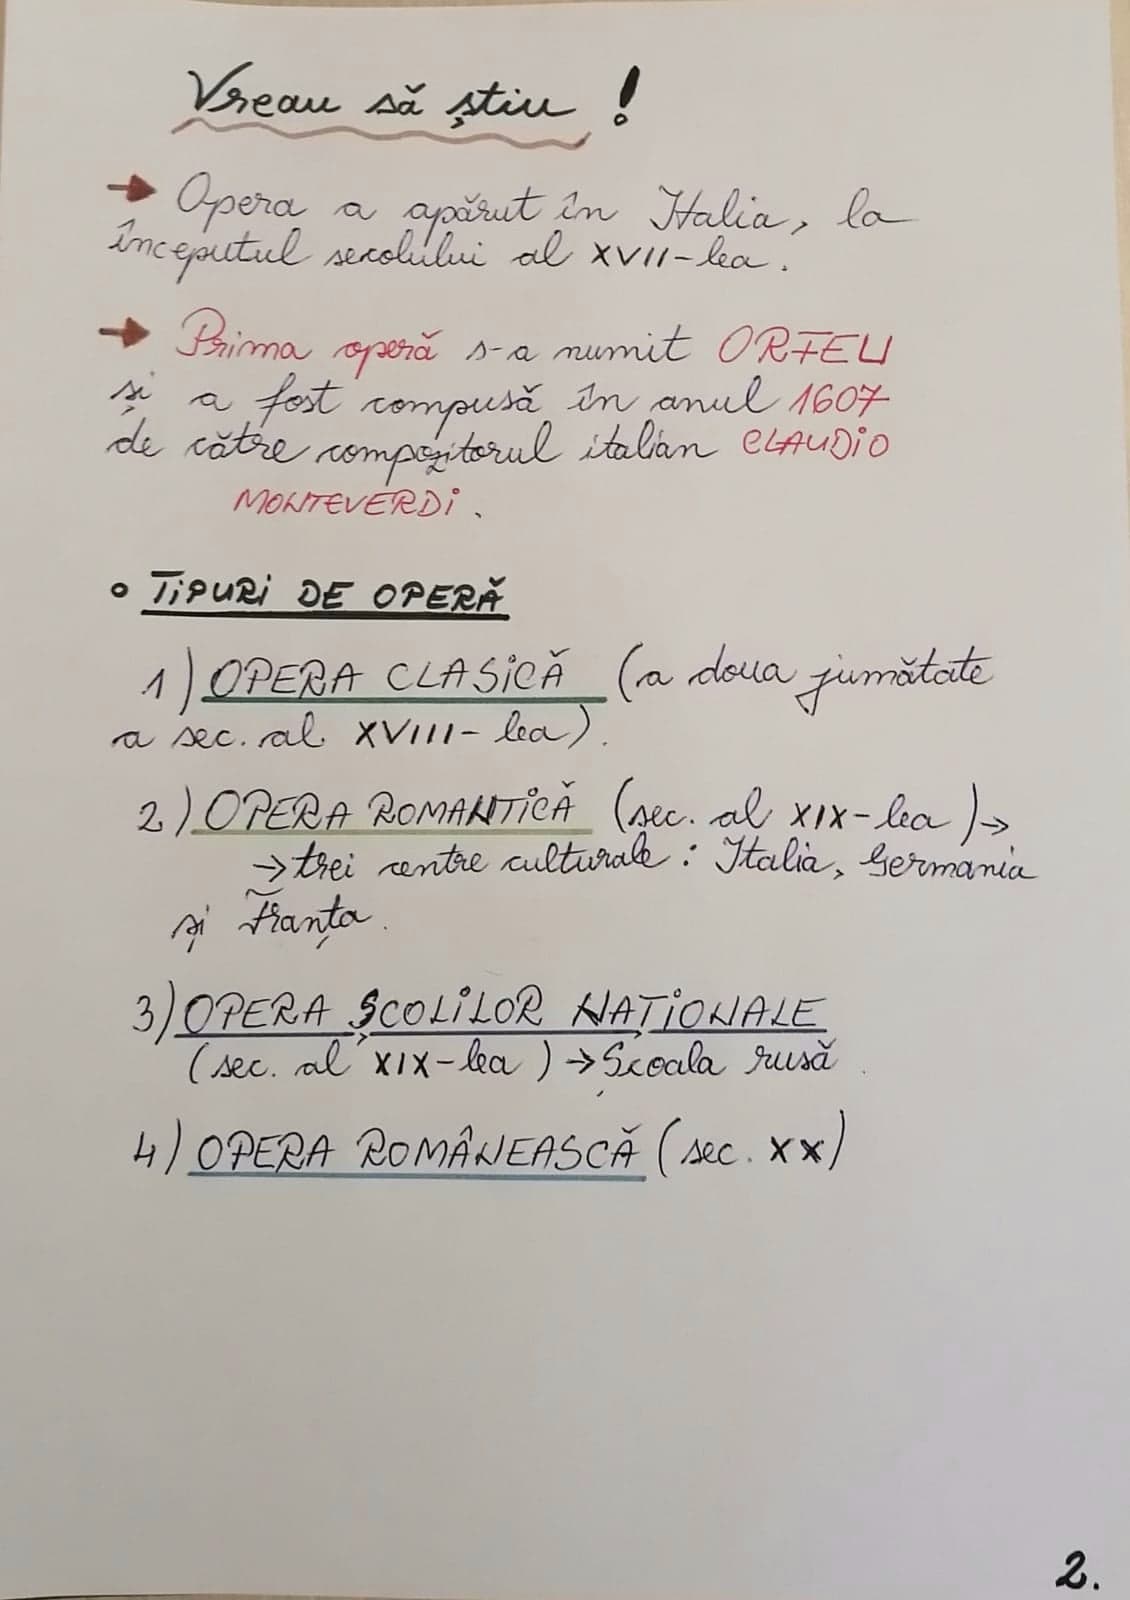 Vreau să știu !
→ Opera a apărut în Italia, la
începutul secolului al XVII-lea.
→ Prima operă s-a numit ORFEU
și a fost compusă în anul 1607
de către compozitorul italian CLAUDIO
MONTEVERDI.
• TIPURI DE OPERĂ
1) OPERA CLASICĂ (a doua jumătate
a sec. al XVIII-lea).
2) OPERA ROMANTICĂ (sec. al XIX-lea) →
→ trei centre culturale: Italia, Germania
și Franța.
3) OPERA ȘCOLILOR NAȚIONALE
(sec. al XIX-lea) → Școala rusă.
4) OPERA ROMÂNEASCĂ (sec. XX)
2.